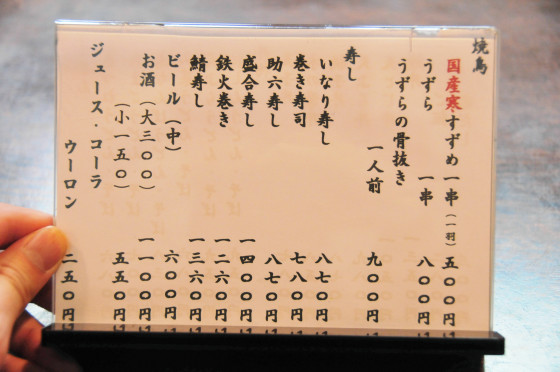 焼鳥
国産寒すずめ 一串(一羽) 五〇〇円
うずら 一串 八〇〇円
うずらの骨抜き 一人前 九〇〇円
寿し
いなり寿し 八七〇円
巻き寿司 七八〇円
助六寿し 八七〇円
盛合寿し 一四〇〇円
鉄火巻き 一二六〇円
鯖寿し 一三六〇円
ビール(中) 六〇〇円
お酒(大三〇〇) 一一〇〇円
(小一五〇) 五五〇円
ジュース・コーラ
ウーロン 二五〇円